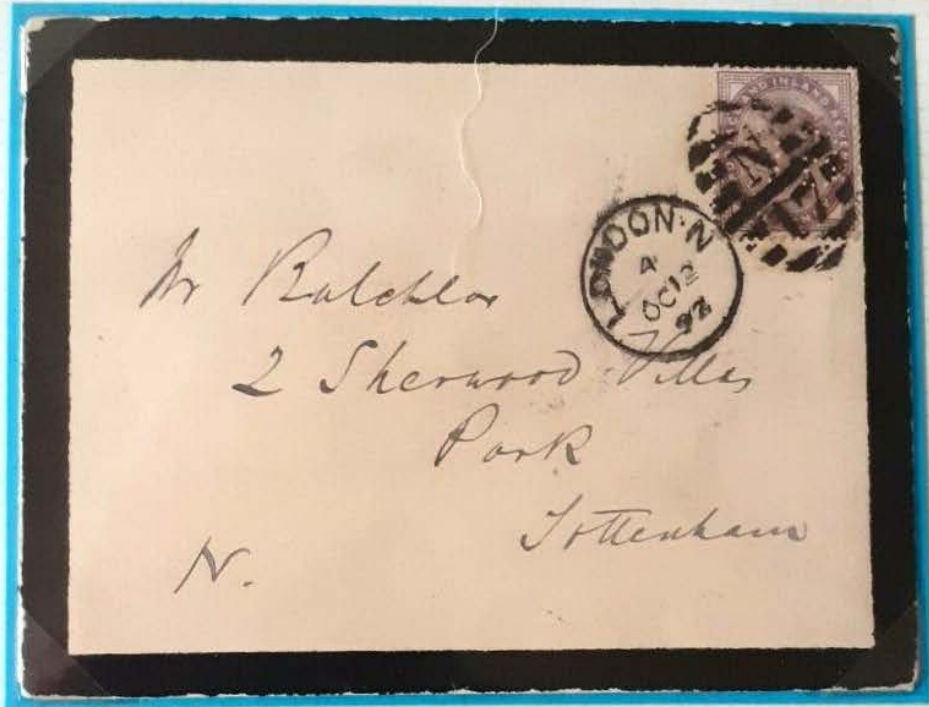 LONDON·N
A
OC 12
92
N
17
Mr Batchlor
2 Sherwood Villas
Park
Tottenham
N.